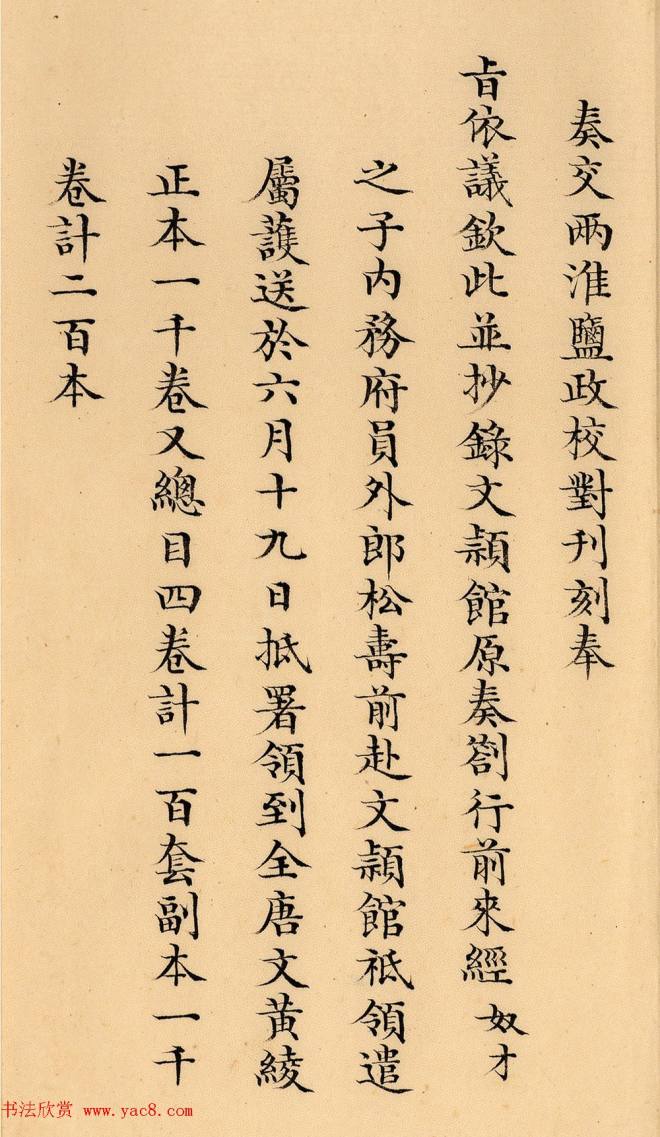 奏交兩淮鹽政校對刊刻奉
旨依議欽此並抄錄文穎館原奏劄行前來經奴才
之子內務府員外郎松壽前赴文穎館祗領遣
屬護送於六月十九日抵署領到全唐文黃綾
正本一千卷又總目四卷計一百套副本一千
卷計二百本
书法欣赏 www.yac8.com